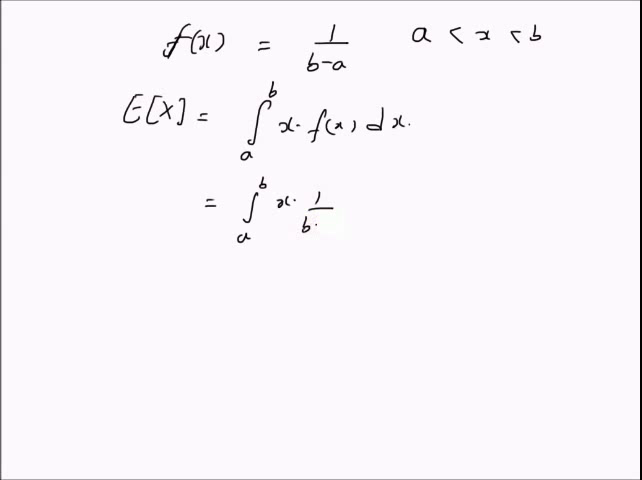 f(x) = 1/(b-a) a < x < b
E[X] = ∫_a^b x. f(x) dx.
= ∫_a^b x. 1/b.